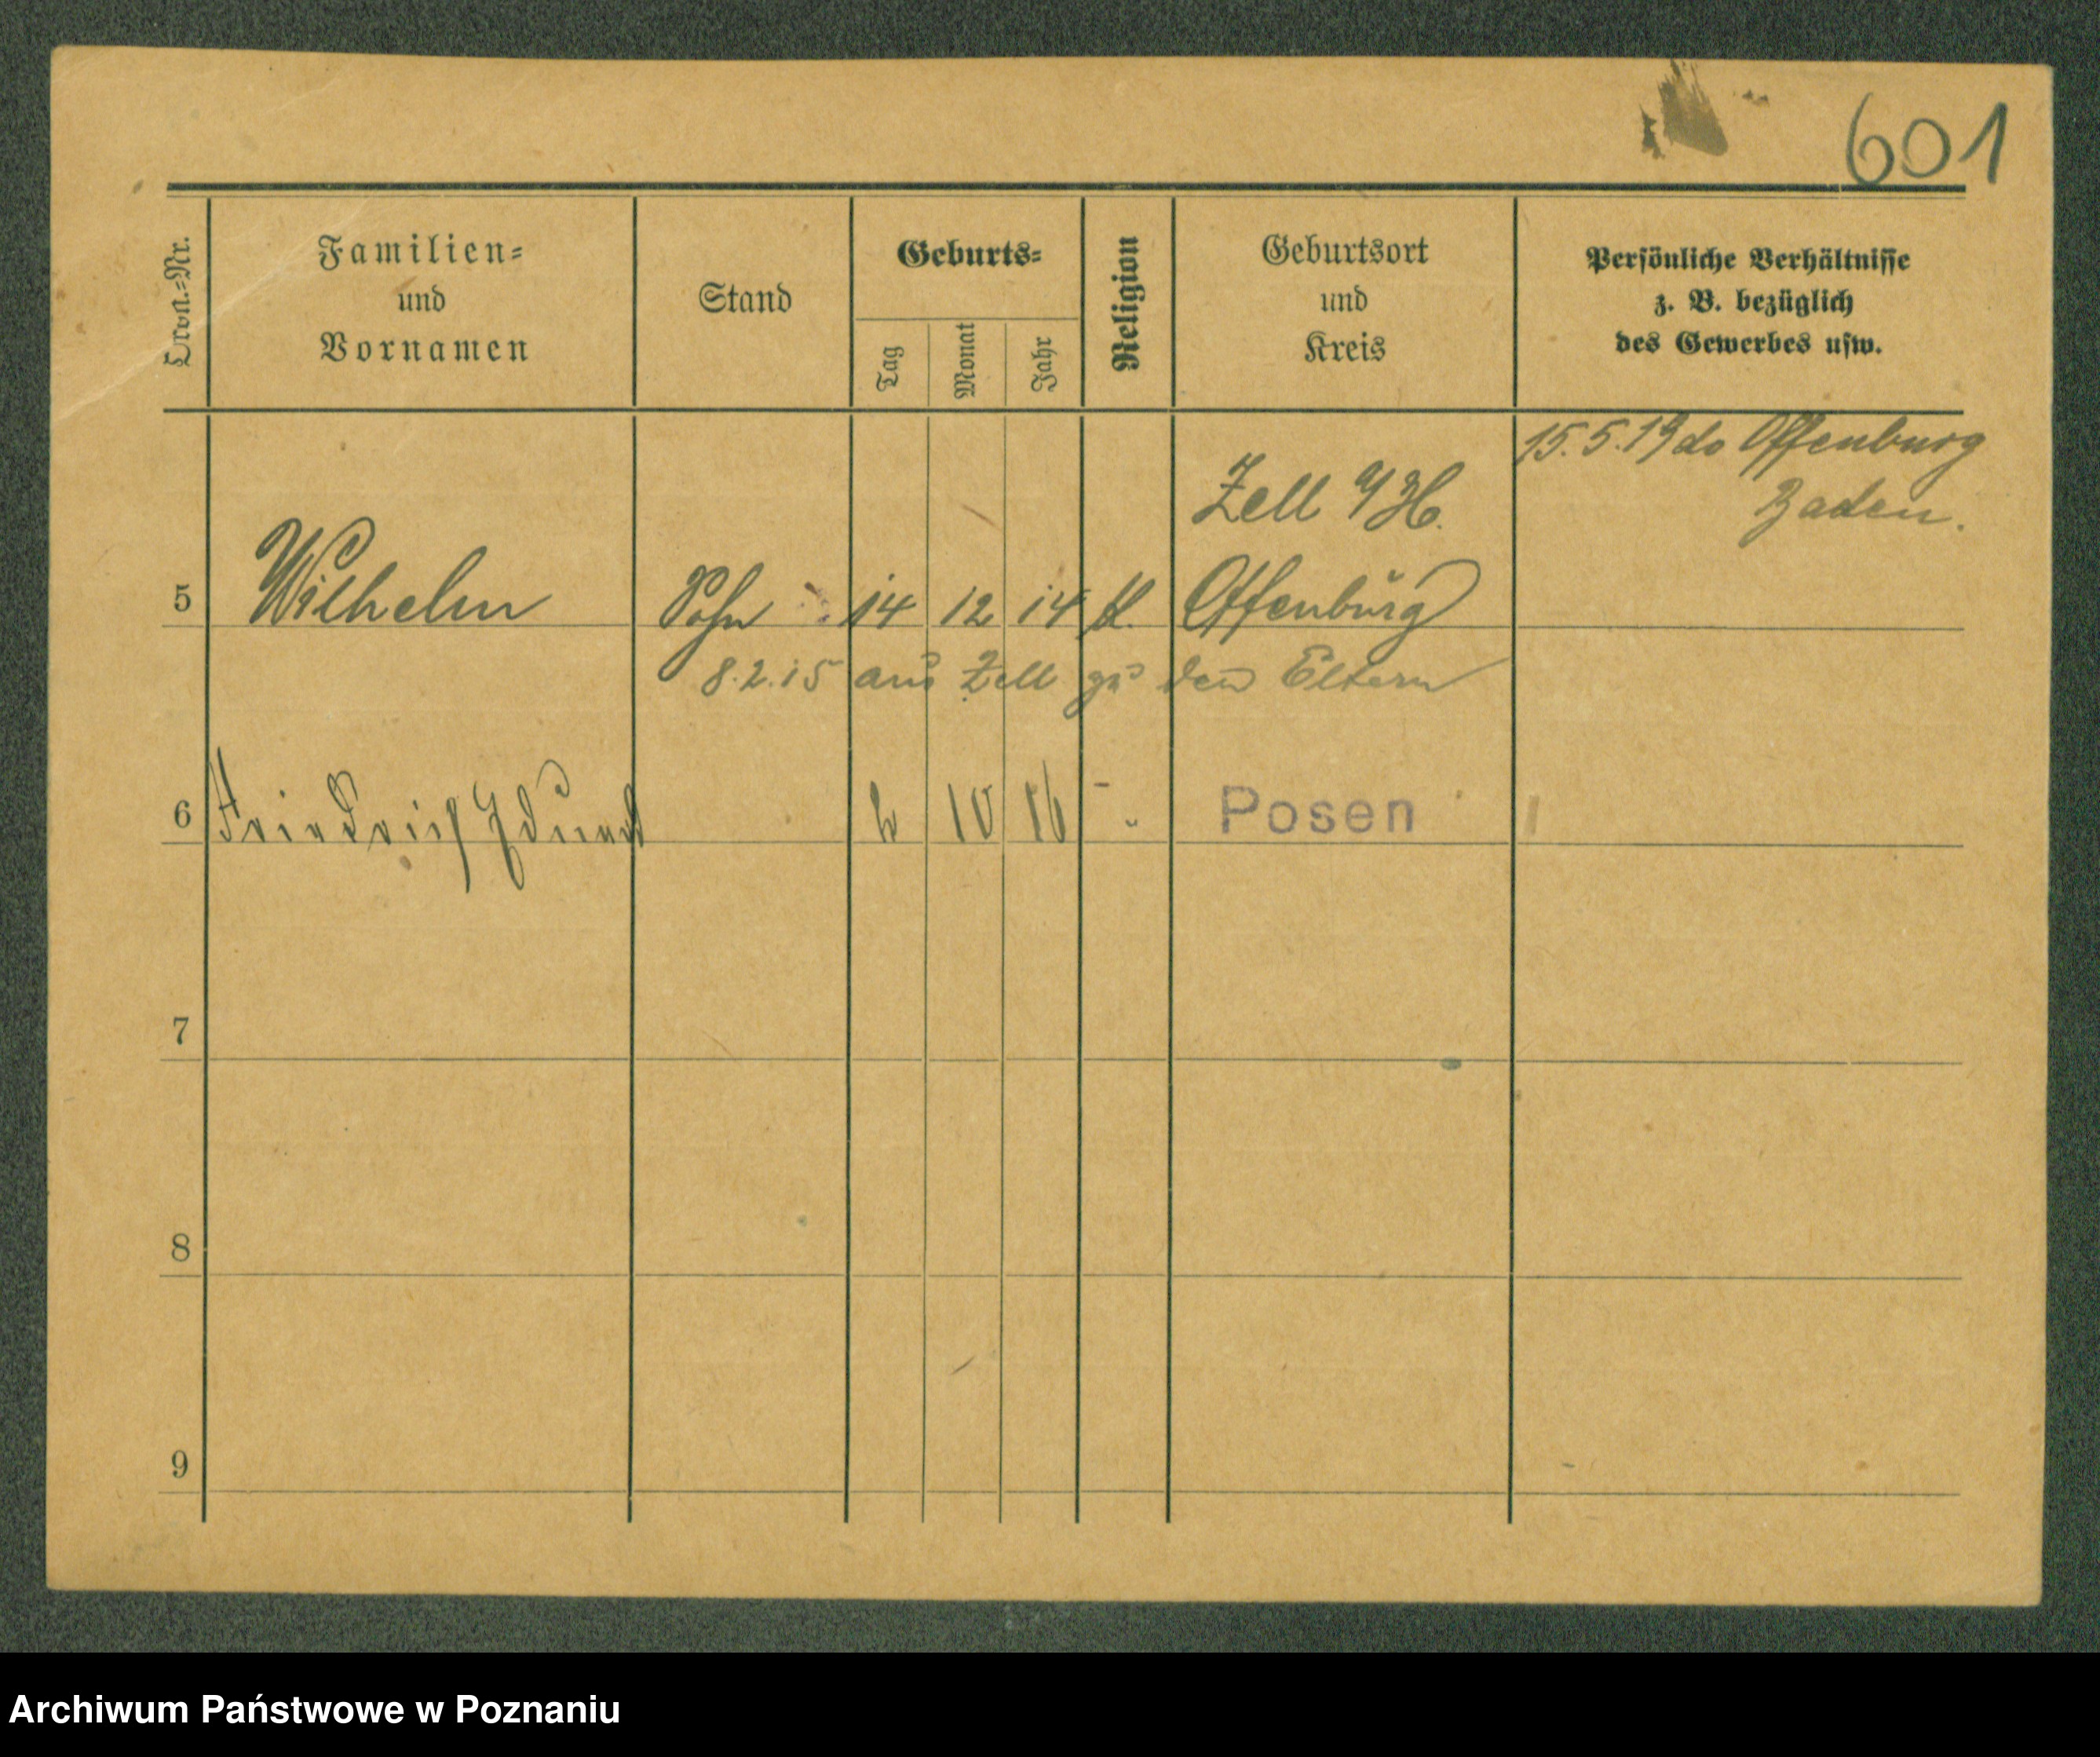 601
Ordn.-Nr.
Familien-
und
Vornamen
Stand
Geburts-
Tag
Monat
Jahr
Religion
Geburtsort
und
Kreis
Persönliche Verhältnisse
z. B. bezüglich
des Gewerbes usw.
15.5.19 do Offenburg
Baden.
Zell
5 Wilhelm Sohn 14 12 14 K. Offenburg
8.2.15 aus Zell zu den Eltern
6 Friedrich Eduard 10 16 Posen
7
8
9
Archiwum Państwowe w Poznaniu